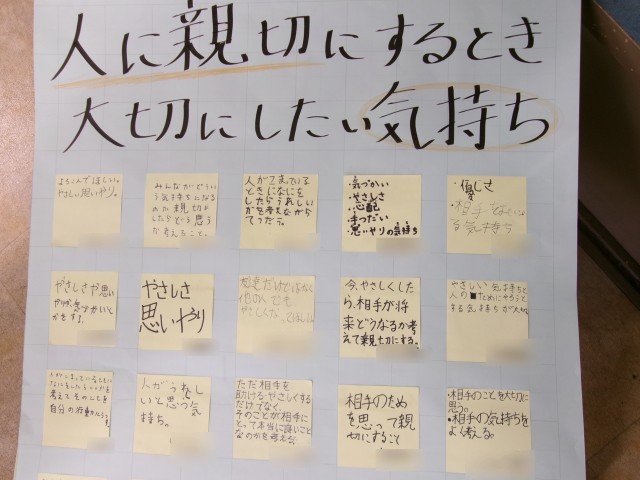 人に親切にするとき
大切にしたい気持ち
よろこんでほしい。
やさしい思いやり。
みんながどうい
う気持ちになる
のか親切が
したらどう思う
か考えること。
人がこまっている
ときになにを
したらうれしい
かを考えながら
てつだう。
・気づかい
・やさしさ
・心配
・手つだい
・思いやりの気持ち
・優しさ
・相手を
る気持ち
やさしさや思い
やり、気づかいと
かをする。
やさしさ
思いやり
友達だけではなく
他の人でも
やさしくなってほしい
今、やさしくした
ら、相手が将
来どうなるか考
えて親切にする。
やさしい気持ちと
人のためにやろうと
する気持ちが大切
人がこまっているときに
なにをしたらいいかを
考えてそのことを
自分の行動
人がうれし
いと思う気
持ち。
ただ相手を
助ける・やさしくする
だけでなく、
そのことが相手に
とって本当に良いこと
なのかを考える
相手のため
を思って親
切にすること
・相手のことを大切に
思う。
・相手の気持ちを
よく考える。